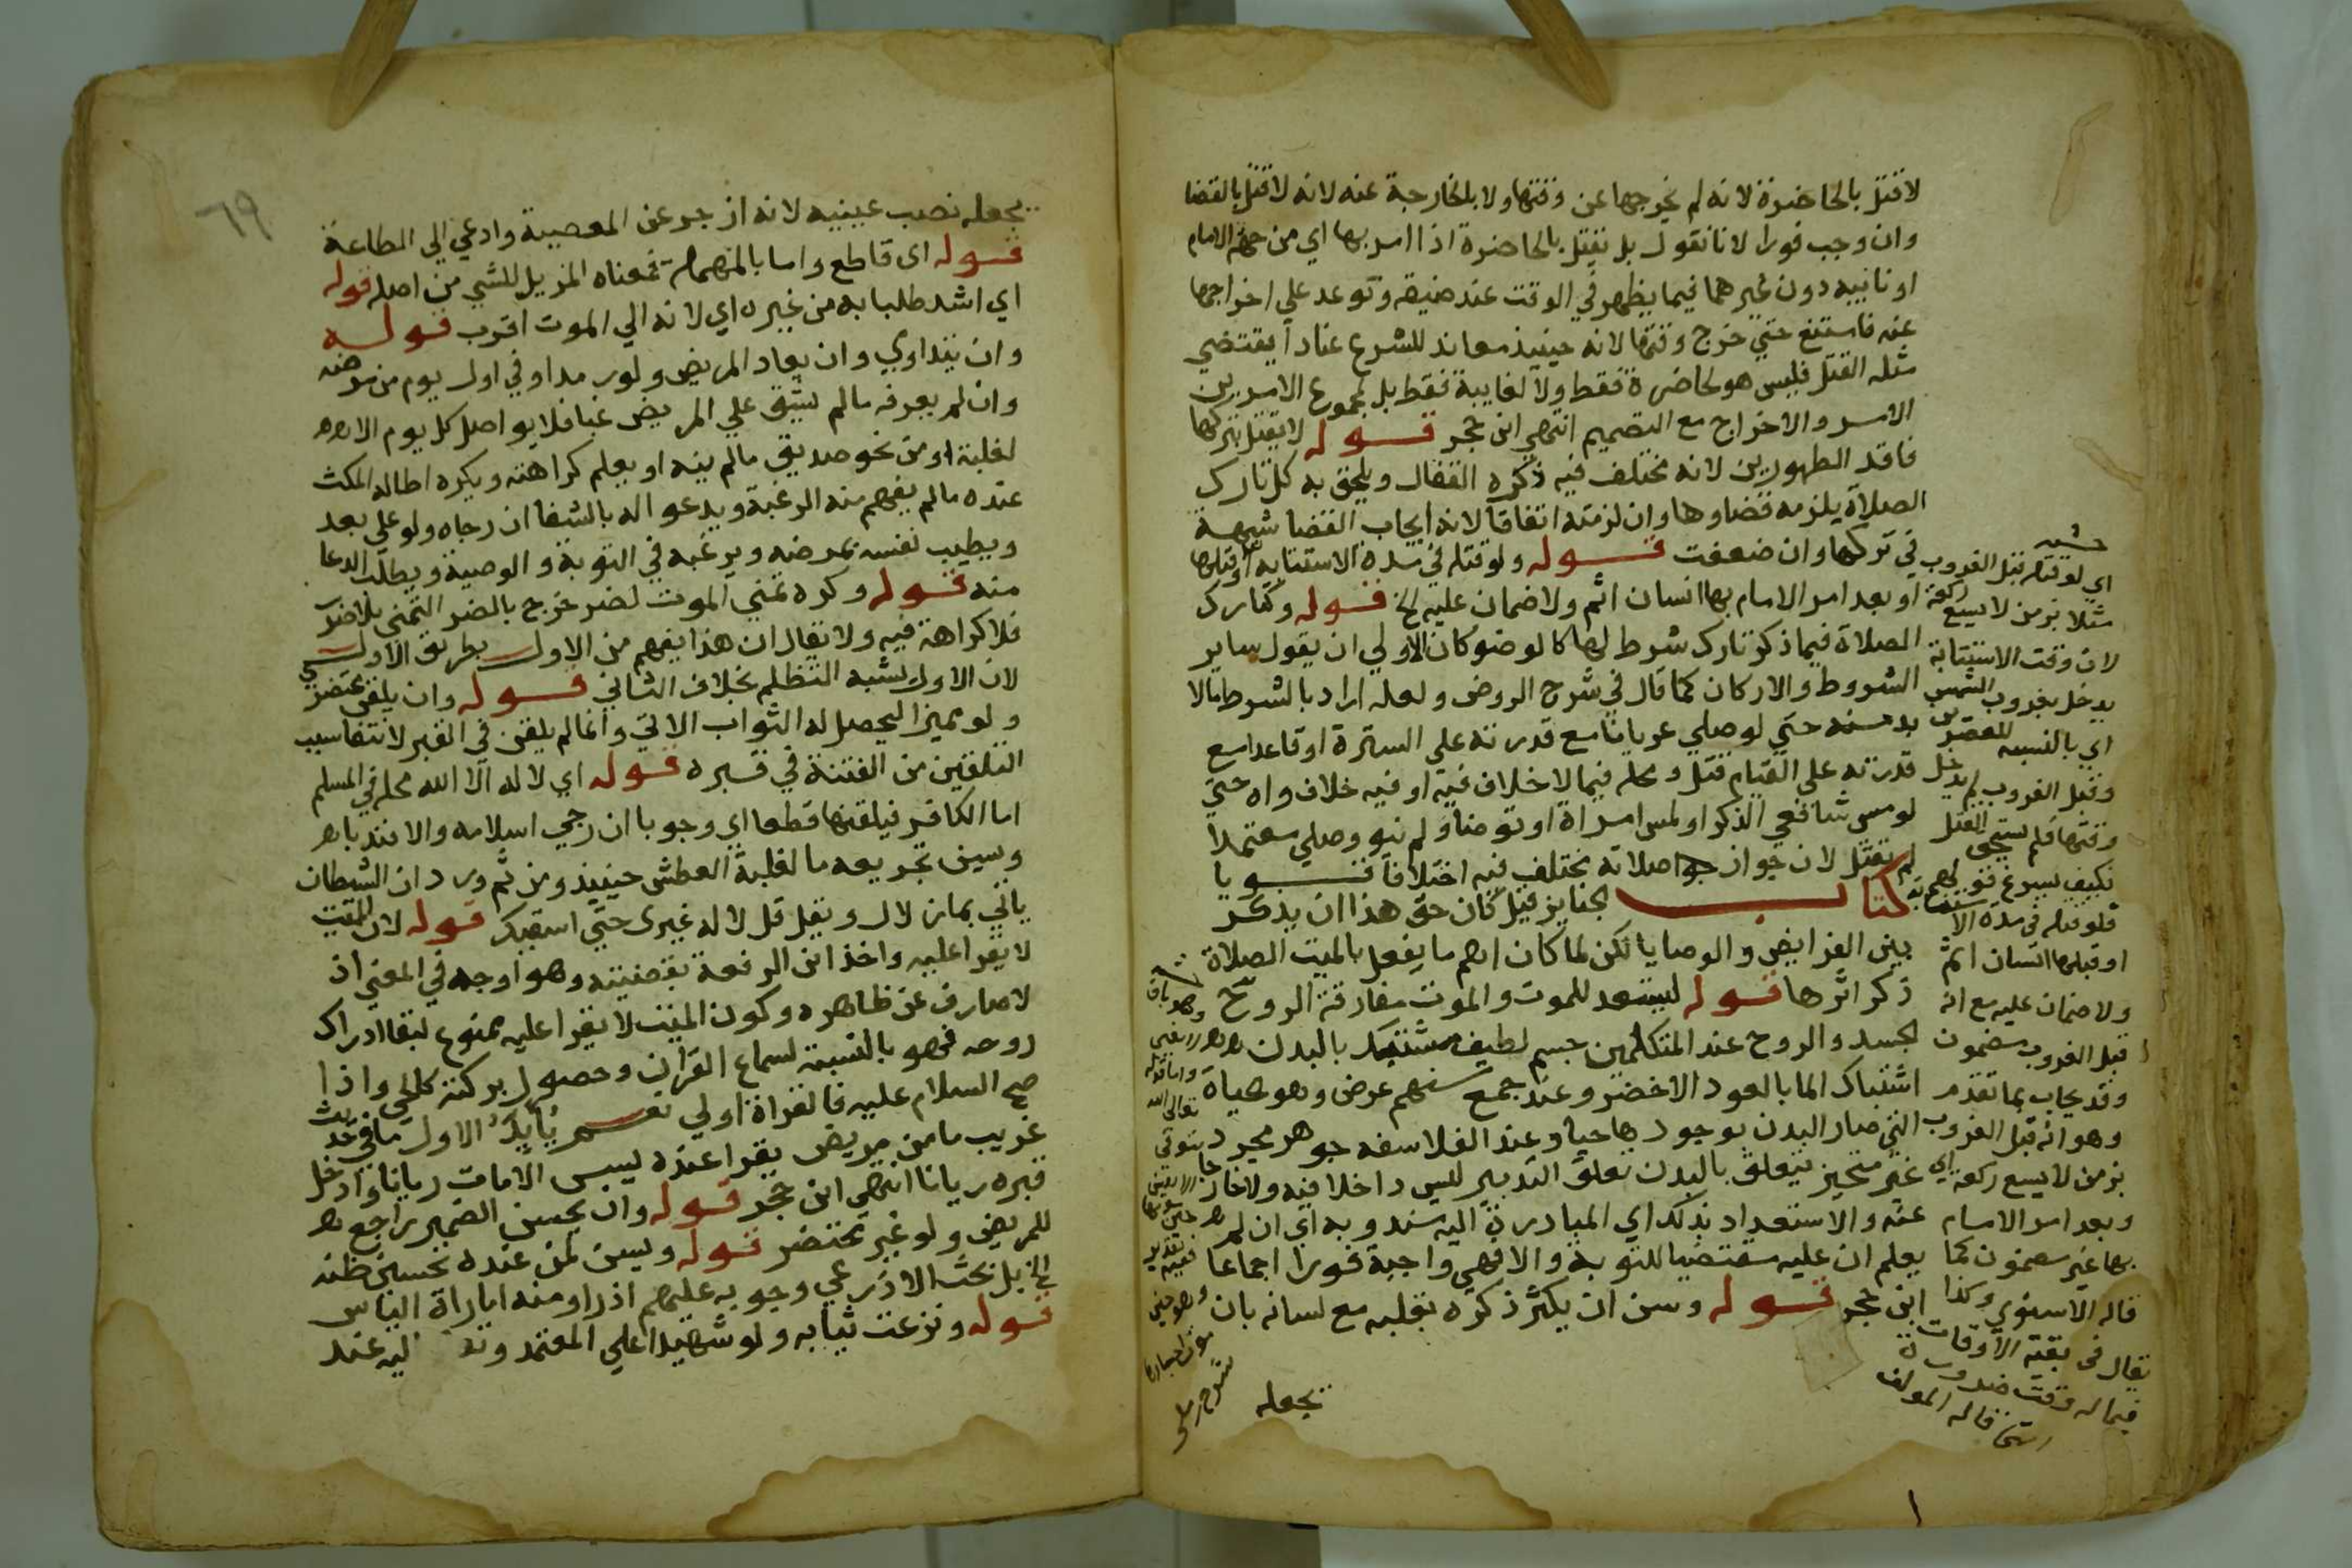 لا قتل بالحاضرة لانه لم يخرجها عن وقتها ولا بالخارجة عنه لانه لا قتل بالقضا
وان وجب فورا لانا نقول بل نقتل بالحاضرة اذا امر بها اي من جهة الامام
او نايبه دون غيرهما فيما يظهر في الوقت عند ضيقه وتوعد علي اخراجها
عنه فامتنع حتي خرج وقتها لانه حينيذ معاند للشرع عنادا يقتضي
مثله القتل فليس هو لحاضرة فقط ولا لفايبة فقط بل لمجموع الامرين
الامر والاخراج مع التصميم انتهي ابن حجر قوله لا يقتل بتركها
فاقد الطهورين لانه مختلف فيه ذكره القفال ويلحق به كل تارك
الصلاة يلزمه قضاوها وان لزمته اتفاقا لانه ايجاب القضا شبهة
في تركها وان ضعفت قوله ولو قتله في مدة الاستتابة او قبلها
او بعد امر الامام بها انسان اثم ولا ضمان عليه الخ قوله وكتارك
الصلاة فيما ذكر تارك شرط لها كالوضو كان الاولي ان يقول ساير
الشروط والاركان كما قال في شرح الروض ولعله اراد بالشرط مالا
بد منه حتي لو صلي عريانا مع قدرته علي السترة او قاعدا مع
قدرته علي القيام قتل ومحله فيما لا خلاف فيه او فيه خلاف واه حتي
لو مس شافعي الذكر او لمس امراة او توضا ولم ينو وصلي متعمدا
لم يقتل لان جواز صلاته مختلف فيه اختلافا قويا
كتاب الجنايز قيل كان حق هذا ان يذكر
بين الفرايض والوصايا لكن لما كان اهم ما يفعل بالميت الصلاة
ذكر اثرها قوله ليستعد للموت والموت مفارقة الروح
الجسد والروح عند المتكلمين جسم لطيف مشتبك بالبدن
اشتباك الما بالعود الاخضر وعند جمع منهم عرض وهو الحياة
التي صار البدن بوجودها حيا وعند الفلاسفه جوهر مجرد
غير متحيز يتعلق بالبدن تعلق التدبير لليس داخلا فيه ولا خارجا
عنه والاستعداد بذلك اي المبادرة اليه مندوبة اي ان لم
يعلم ان عليه مقتضيا للتوبة والا فهي واجبة فورا اجماعا
ابن حجر قوله وسن ان يكثر ذكره بقلبه مع لسانه بان
يجعله
اي لو قتله قبل الغروب
مثلا بزمن لا يسع ركعة
لان وقت الاستتابة
يدخل بغروب الشمس
اي بالنسبه للعصر
وقبل الغروب لم يدخل
وقتها فلم يستحق القتل
فكيف يسوغ
فلو قتله في مدة الا
او قبلها انسان اثم
ولا ضمان عليه مع انه
قبل الغروب مضمون
وقد يجاب بما تقدم
وهو انه قبل الغروب
بزمن لا يسع ركعة اي
وبعد امر الامام
بها غير مضمون كما
قاله الاسنوي وكذا
يقال في بقية الاوقات
فيما له وقت ضرورة
انتهي قاله المولف
وهو باق
واما قوله
تعالي الله
يتوفي
٦٩
يجعله نصب عينيه لانه ازجر عن المعصية وادعي الي الطاعة
قوله اي قاطع واما بالمهملة فمعناه المزيل للشي من اصله قوله
اي اشد طلبا به من غيره اي لانه الي الموت اقرب قوله
وان يتداوي وان يعاد المريض ولو رمدا وفي اول يوم من مرضه
وان لم يعرفه مالم يشق علي المريض غبا فلا يواصل كل يوم الا
لغلبة او من نحو صديق مالم ينه او يعلم كراهته ويكره اطالة المكث
عنده مالم يفهم منه الرغبة ويدعو له بالشفا ان رجاه ولو علي بعد
ويطيب نفسه بمرضه ويرغبه في التوبة والوصية ويطلب الدعا
منه قوله وكره تمني الموت لضر خرج بالضر التمني بلا ضر
فلا كراهة فيه ولا يقال ان هذا يفهم من الاول بطريق الاولي
لان الاول يشبه التظلم بخلاف الثاني قوله وان يلقن محتضر
ولو مميزا ليحصل له الثواب الاتي وانما لم يلقن في القبر لانتفا سبب
التلقين من الفتنة في قبره قوله اي لا اله الا الله محله في المسلم
اما الكافر فيلقنها قطعا اي وجوبا ان رجي اسلامه والا فندبا
وسين تجريعه ما لغلبة العطش حينيذ ومن ثم ورد ان الشيطان
ياتي بما زلال ويقل قل لا اله غيري حتي اسقيك قوله لان الميت
لا يقرا عليه واخذ ابن الرفعة بقضيته وهو اوجه في المعني اذ
لا صارف عن ظاهره وكون الميت لا يقرا عليه ممنوع لبقا ادراك
روحه فهو بالنسبة لسماع القران وحصول بركته كالحي واذا
صح السلام عليه فالقراة اولي نعم يايد الاول ما في حديث
غريب ما من مريض يقرا عنده ليس الا مات ريانا وادخل
قبره ريانا انتهي ابن حجر قوله وان يحسن الضمير راجع
للمريض ولو غير محتضر قوله ويسن لمن عنده تحسين ظنه
الخ بل بحث الاذرعي وجوبه عليهم اذ راو منه امارات الياس
قوله ونزعت ثيابه ولو شهيدا علي المعتمد عند